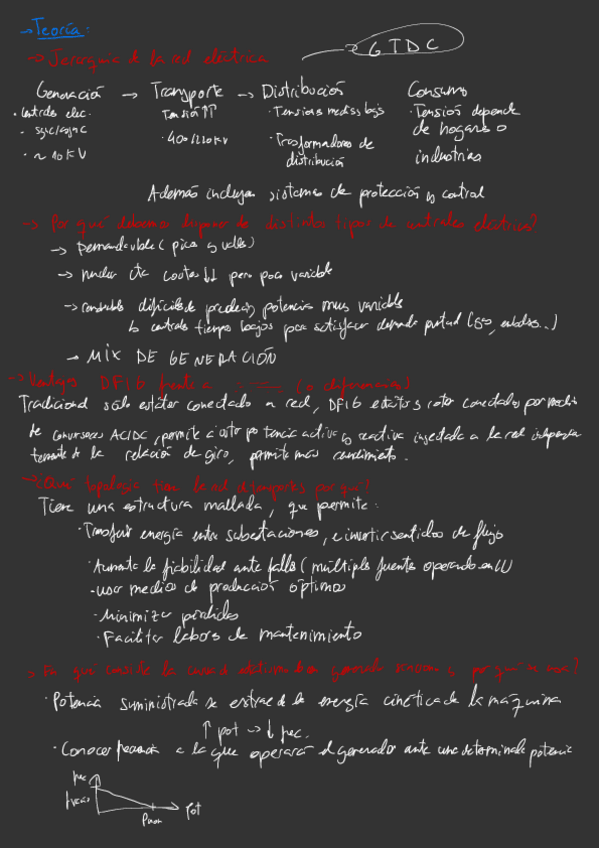 → Teoría:
→ Jerarquía de la red eléctrica → GTDC
Generación → Transporte → Distribución Consumo
· Centrales elec. Tensión ↑↑ · Tensiones medias bajas · Tensión depende
· sync/async · 400/220 kV · Trasformadores de de hogares o
· ~ 10 KV distribución industrias
Además incluyen sistemas de protección y control
→ Por qué debemos disponer de distintos tipos de centrales eléctricas?
→ Demanda vble (picos y valles)
→ nuclear cte costes ↓↓ pero poco variable
→ renovables difíciles de predecir, potencia muy variable
↳ centrales tiempos bajos para satisfacer demanda puntual (gas, embalses...)
→ MIX DE GENERACIÓN
→ Ventajas DFIG frente a
Tradicional solo estátor conectado a red, DFIG estátor y rotor conectados por medio
de conversores AC/DC, permite potencia activa y reactiva inyectada a la red
de la relación de giro, permite más rendimiento.
→ ¿Qué topología tiene la red de y por qué?
Tiene una estructura mallada, que permite:
· Trasferir energía entre subestaciones, e invertir sentidos de flujo
· Aumenta la fiabilidad ante fallos (múltiples fuentes operando en
· usar medios de producción óptimos
· Minimizar pérdidas
· Facilitar labores de mantenimiento
→ En qué consiste la curva de generador síncrono y por qué se usa?
· Potencia suministrada se extrae de la energía cinética de la máquina
↑ pot → ↓ frec.
· Conocer frecuencia a la que operará el generador ante una determinada potencia
frec
Pmax Pot